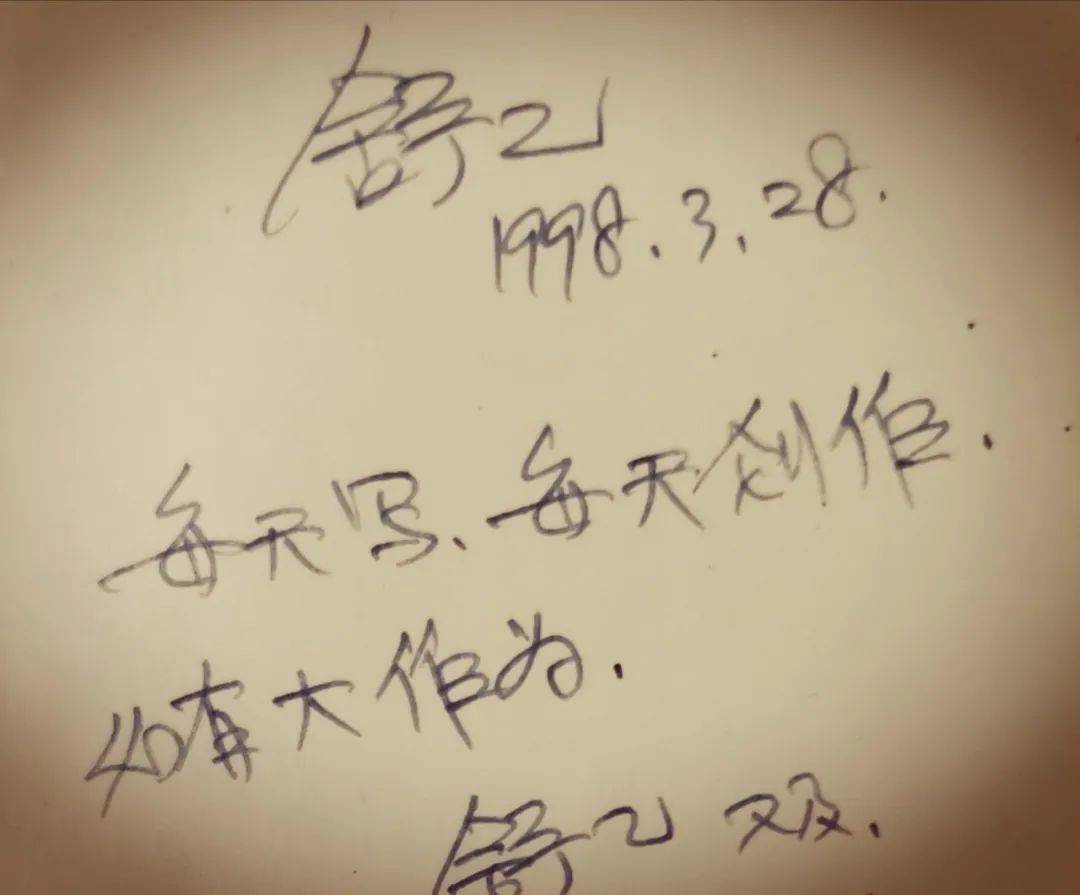 舒乙
1998.3.28.
每天写、每天创作.
必有大作为.
舒乙 又及.